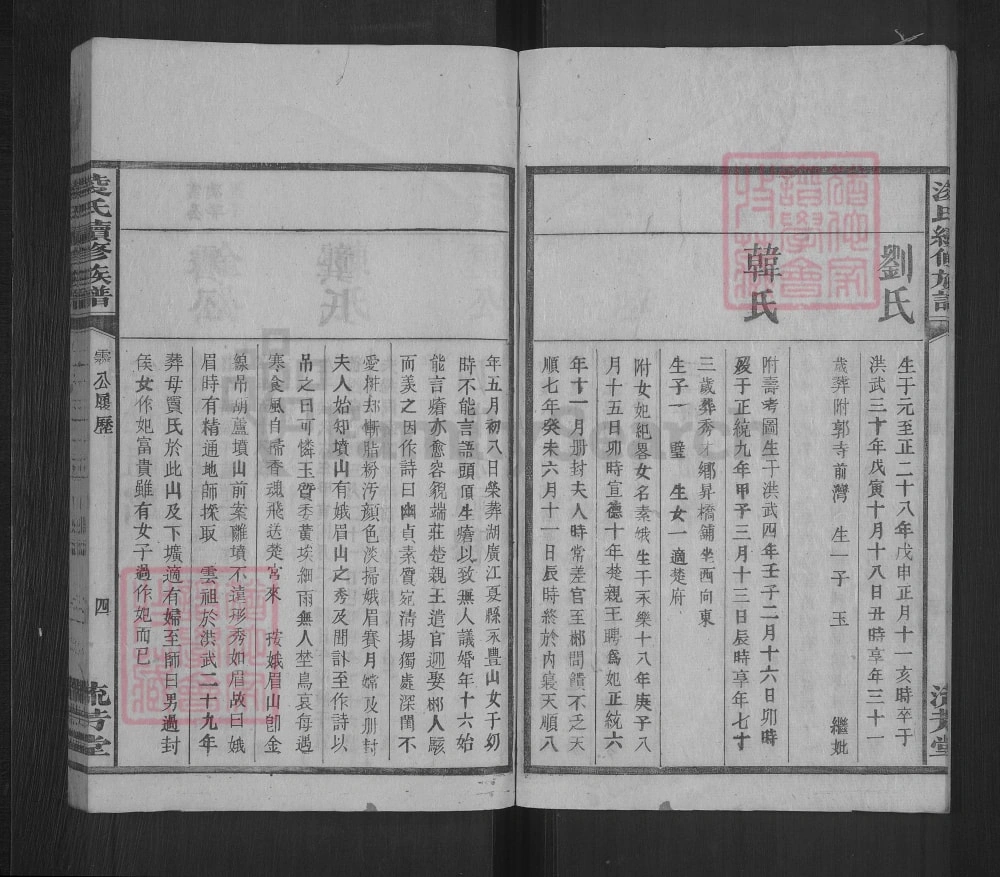 劉氏
生于元至正二十八年戊申正月十一亥時卒于
洪武三十年戊寅十月十八日丑時享年三十一
歲葬附郭寺前灣 生一子 玉 繼妣
韓氏
附壽考圖生于洪武四年壬子二月十六日卯時
歿于正統九年甲子三月十三日辰時享年七十
三歲葬秀才鄉昇橋鋪坐西向東
生子一 璧 生女一適楚府
附女妃紀畧女名素娥生于永樂十八年庚子八
月十五日卯時宣德十年楚親王聘為妃正統六
年十一月册封夫人時常差官至郴問饋不乏天
順七年癸未六月十一日辰時終於內寢天順八
年五月初八日榮葬湖廣江夏縣永豊山女于幼
時不能言語頭頂生瘡以致無人議婚年十六始
能言瘡亦愈容貌端莊楚親王遣官迎娶郴人駭
而美之因作詩曰幽貞素質宛清揚獨處深閨不
愛粧却慚脂粉汚顏色淡掃娥眉賽月嫦及册封
夫人始知墳山有娥眉山之秀及聞訃至作詩以
吊之曰可憐玉質委黃埃細雨無人塟鳥哀每遇
寒食風自掃香魂飛送楚宮來 按娥眉山卽金
線吊葫蘆墳山前案離墳不遠形秀如眉故曰娥
眉時有精通地師採取 雲祖於洪武二十九年
葬母賈氏於此山及下壙適有婦至師曰男過封
侯女作妃富貴雖有女子過作妃而已
袁氏續修族譜
霖公履歷
四
流芳堂